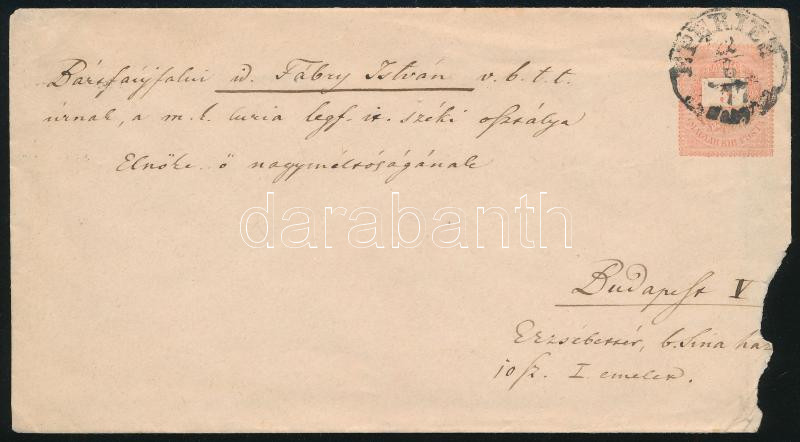 EPERJES
Bársfalyfalvi id. Fábry István v.b.t.t.
úrnak, a m. k. curia legf. it. széki osztálya
Elnöke ő nagyméltóságának
MAGYAR KIR. POSTA
darabanth
Budapest V
Erzsébettér, b. Sina ház
10 sz. I emelet.